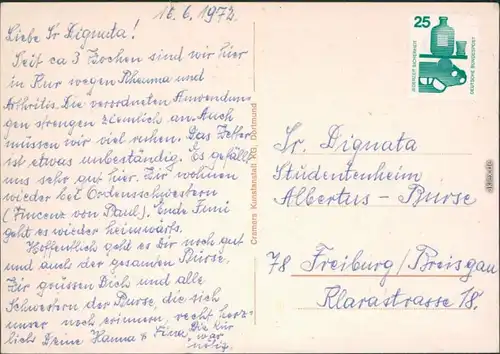 16.6.1972.
Liebe Sr Dignata!
Seit ca 3 Wochen sind wir hier
in Kur wegen Rheuma und
Arthritis. Die verordneten Anwendun-
gen strengen ziemlich an. Auch
müssen wir viel ruhen. Das Wetter
ist etwas unbeständig. Es gefällt
uns sehr gut hier. Wir wohnen
wieder bei Ordensschwestern
(Vincenz von Paul). Ende Juni
geht es wieder heimwärts.
Hoffentlich geht es Dir noch gut
und auch der gesamten Burse.
Wir grüssen Dich und alle
Schwestern der Burse, die sich
unser noch erinnern, recht herz-
lich Deine Hanna + Fina
Die Kur
war
nötig.
Cramers Kunstanstalt KG, Dortmund
25
JEDERZEIT SICHERHEIT
DEUTSCHE BUNDESPOST
Sr. Dignata
Studentenheim
Albertus-Burse
78 Freiburg/Breisgau
Klarastrasse 18.